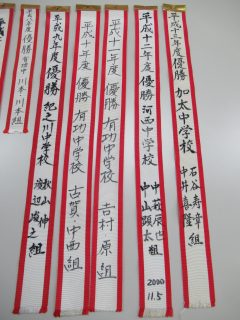 平成十三年度優勝 加太中学校 石谷寿章 中井喜隆組
平成十二年度 優勝 河西中学校 中萩辰也 中山顕太組
2000
11.5
平成十一年度 優勝 有功中学校 吉村・原組
平成十年度 優勝 有功中学校 古賀・中西組
平成九年度優勝 紀之川中学校 秋山伸 渡辺竣之組
優勝 有功中 川本・川本組